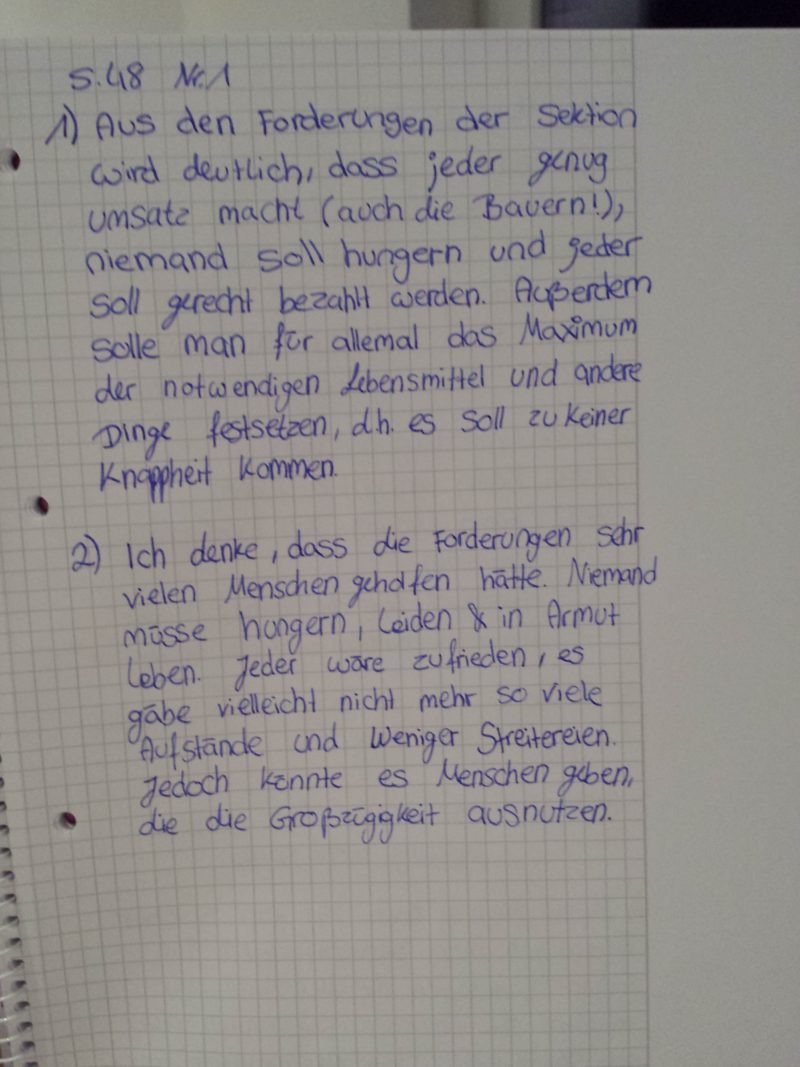 S.48 Nr.1
1) Aus den Forderungen der Sektion
wird deutlich, dass jeder genug
umsatz macht (auch die Bauern!),
niemand soll hungern und jeder
soll gerecht bezahlt werden. Außerdem
solle man für allemal das Maximum
der notwendigen Lebensmittel und andere
Dinge festsetzen, d.h. es soll zu keiner
Knappheit kommen.
2) Ich denke, dass die Forderungen sehr
vielen Menschen geholfen hätte. Niemand
müsse hungern, leiden & in Armut
leben. Jeder wäre zufrieden, es
gäbe vielleicht nicht mehr so viele
Aufstände und weniger Streitereien.
Jedoch könnte es Menschen geben,
die die Großzügigkeit ausnutzen.